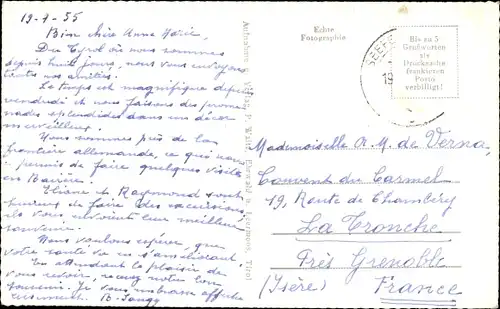 19-9-55
Bien chère Anne Marie,
Du Tyrol où nous sommes
depuis huit jours, nous vous envoyons
toutes nos amitiés.
Le temps est magnifique depuis
vendredi et nous faisons des prome
nades splendides dans un décor
merveilleux.
Nous sommes près de la
frontière allemande, ce qui nous
a permis de faire quelques visites
en Bavière.
Eliane et Raymond sont
heureux de faire des excursions
ils vous envoient leur meilleur
souvenir.
Nous voulons espérer, que
votre santé va en s'améliorant.
En attendant le plaisir de
vous revoir, recevez notre bon
souvenir. Je vous embrasse affectu
eusement. B.
Echte
Fotographie
SEEFE
19
Bis zu 5
Grußworten
als
Drucksache
(frankiertem
Porto
verbilligt!
Mademoiselle A. M. de Verna,
Couvent du Carmel
19, Route de Chambéry
La Tronche
Près Grenoble
(Isère) France